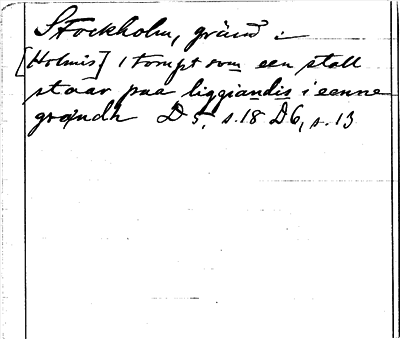 Stockholm, gränd :
[Holmis] 1 tompt som een stall
staar paa liggiandis i eenne
grændh D 5, s.18 D6, s.13